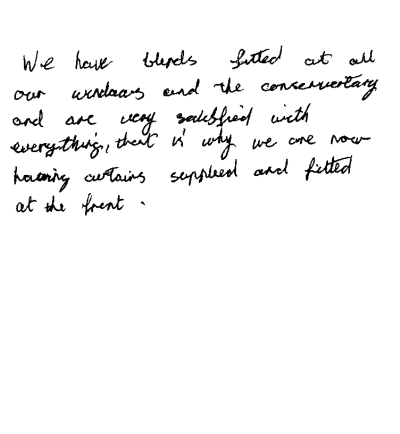 We have blinds fitted at all
our windows and the conservertary
and are very satisfied with
everything, that is why we are now
having curtains supplied and fitted
at the front.